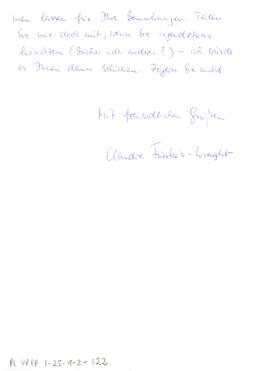 men lassen für Ihre Bemühungen. Teilen
Sie mir doch mit, wenn Sie irgendetwas
brauchen (Bücher oder anderes?) – ich würde
es Ihnen dann schicken. Zögern Sie nicht
Mit freundlichen Grüßen
Claudia
PL UPIP 1-25-1-2-122